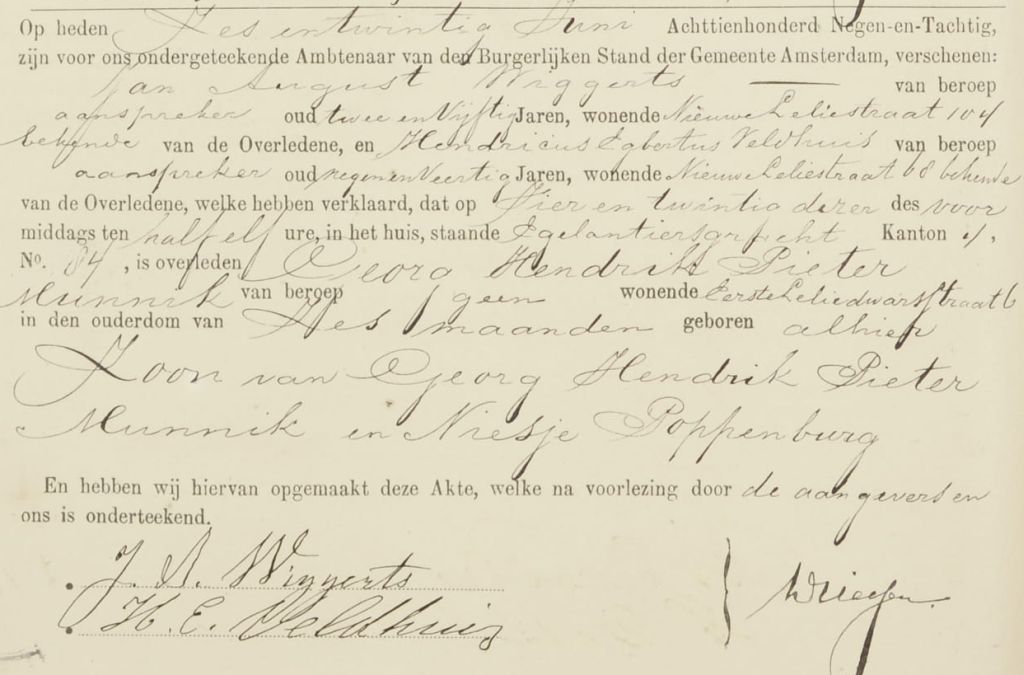 Op heden Zes en twintig Juni Achttienhonderd Negen-en-Tachtig,
zijn voor ons ondergeteekende Ambtenaar van den Burgerlijken Stand der Gemeente Amsterdam, verschenen:
Jan August Wiggerts van beroep
aanspreker oud twee en Vijftig Jaren, wonende Nieuwe Leliestraat 104
bekende van de Overledene, en Hendricus Egbertus Veldhuis van beroep
aanspreker oud negen en Veertig Jaren, wonende Nieuwe Leliestraat 68 bekende
van de Overledene, welke hebben verklaard, dat op Vier en twintig dezer des voor
middags ten half elf ure, in het huis, staande Egelantiersgracht Kanton 4,
No. 84, is overleden Georg Hendrik Pieter
Munnik van beroep geen wonende Eerste Leliedwarsstraat 6
in den ouderdom van Zes maanden geboren alhier
Zoon van Georg Hendrik Pieter
Munnik en Niesje Poppenburg
En hebben wij hiervan opgemaakt deze Akte, welke na voorlezing door de aangevers en
ons is onderteekend.
J. A. Wiggerts
H. E. Veldhuis